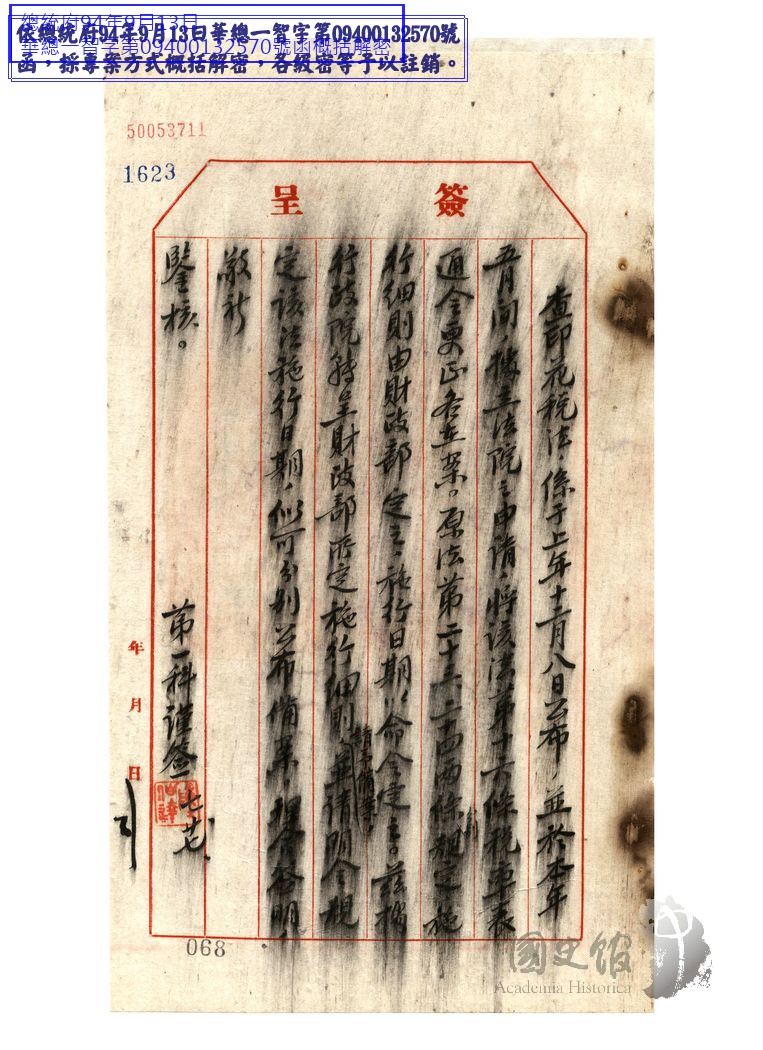 總統府94年9月13日
華總一智字第09400132570號函概括解密
依總統府94年9月13日華總一智字第09400132570號
函，採專案方式概括解密，各級密等予以註銷。
50053711
1623
簽呈
查印花稅法係于上年十二月八日公布，並於本年
五月間據立法院之申請，將該法第十六條稅率表
通令更正各在案。原法第二十三、二十四兩條規定施
行細則由財政部定之，施行日期以命令定之。茲據
行政院轉呈財政部所定施行細則請予備案，並請明令規
定該法施行日期，似可分別公布備案，理合簽明，
敬祈
鑒核。
第一科謹簽 七 廿
年月日
068
國史館
Academia Historica